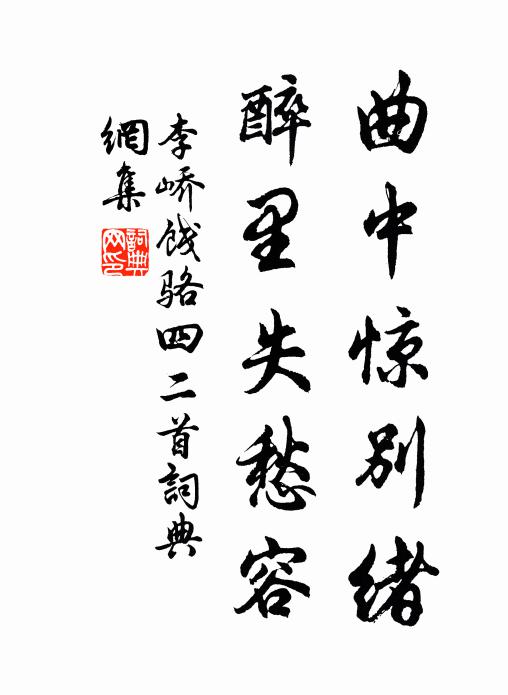 曲中惊别绪
醉里失愁容
李峤饯骆四二首詞典
網集
詞典
网印